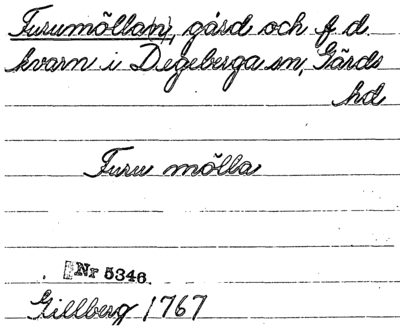 Furumölla(n), gård och f d.
kvarn i Degeberga sn, Gärds
hd
Furu mölla
Nr 5346.
Gillberg 1767